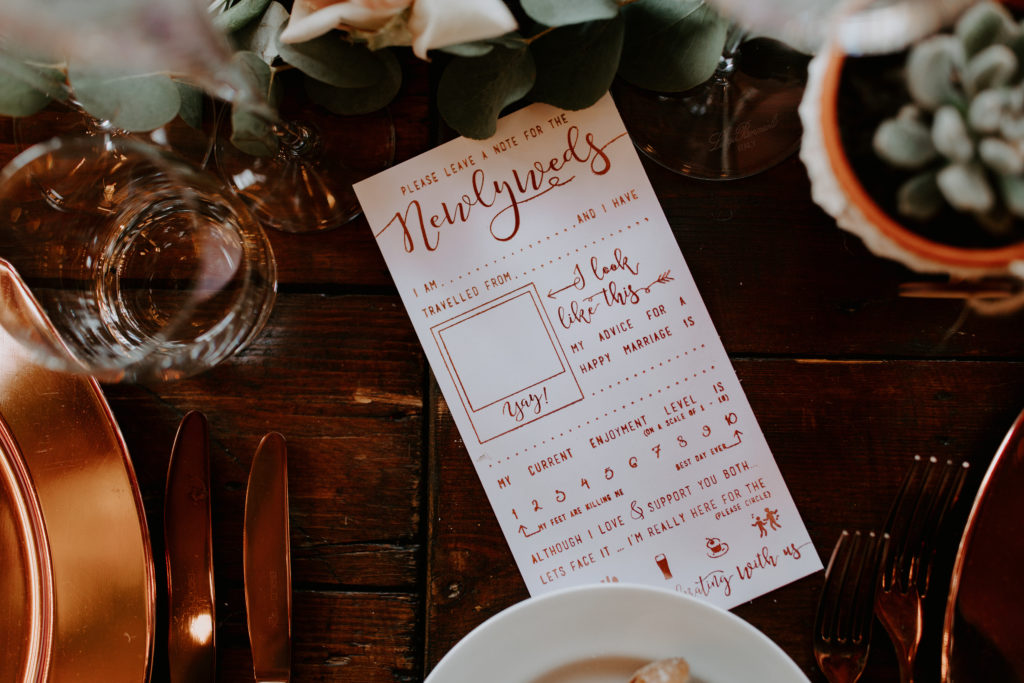 PLEASE LEAVE A NOTE FOR THE
Newlyweds
I AM....................AND I HAVE
TRAVELLED FROM....................
I look
like this
MY ADVICE FOR A
HAPPY MARRIAGE IS
Yay!
MY CURRENT ENJOYMENT LEVEL IS
(ON A SCALE OF 1 .. 10)
1 2 3 4 5 6 7 8 9 10
MY FEET ARE KILLING ME
BEST DAY EVER
ALTHOUGH I LOVE & SUPPORT YOU BOTH...
LETS FACE IT ... I'M REALLY HERE FOR THE
(PLEASE CIRCLE)
with us